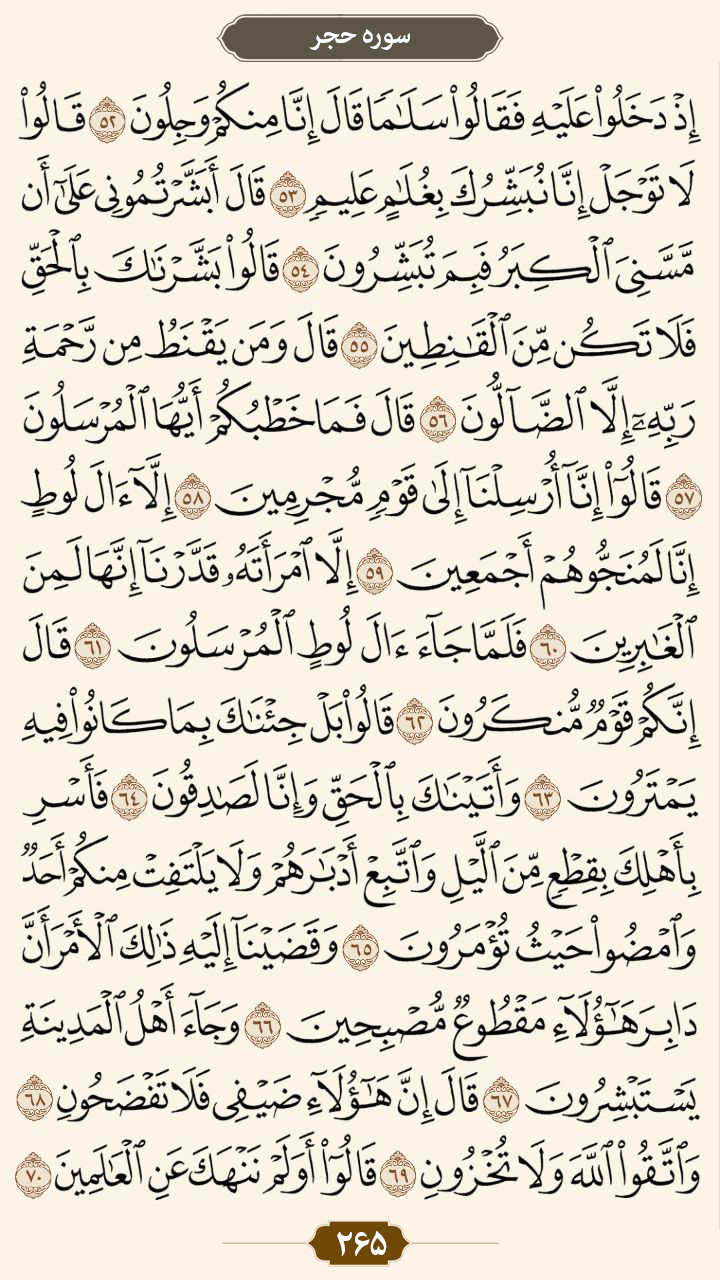 سوره حجر
إِذۡ دَخَلُواْ عَلَيۡهِ فَقَالُواْ سَلَٰمٗا قَالَ إِنَّا مِنكُمۡ وَجِلُونَ ٥٢ قَالُواْ
لَا تَوۡجَلۡ إِنَّا نُبَشِّرُكَ بِغُلَٰمٍ عَلِيمٖ ٥٣ قَالَ أَبَشَّرۡتُمُونِي عَلَىٰٓ أَن
مَّسَّنِيَ ٱلۡكِبَرُ فَبِمَ تُبَشِّرُونَ ٥٤ قَالُواْ بَشَّرۡنَٰكَ بِٱلۡحَقِّ
فَلَا تَكُن مِّنَ ٱلۡقَٰنِطِينَ ٥٥ قَالَ وَمَن يَقۡنَطُ مِن رَّحۡمَةِ
رَبِّهِۦٓ إِلَّا ٱلضَّآلُّونَ ٥٦ قَالَ فَمَا خَطۡبُكُمۡ أَيُّهَا ٱلۡمُرۡسَلُونَ
٥٧ قَالُوٓاْ إِنَّآ أُرۡسِلۡنَآ إِلَىٰ قَوۡمٖ مُّجۡرِمِينَ ٥٨ إِلَّآ ءَالَ لُوطٍ
إِنَّا لَمُنَجُّوهُمۡ أَجۡمَعِينَ ٥٩ إِلَّا ٱمۡرَأَتَهُۥ قَدَّرۡنَآ إِنَّهَا لَمِنَ
ٱلۡغَٰبِرِينَ ٦٠ فَلَمَّا جَآءَ ءَالَ لُوطٍ ٱلۡمُرۡسَلُونَ ٦١ قَالَ
إِنَّكُمۡ قَوۡمٞ مُّنكَرُونَ ٦٢ قَالُواْ بَلۡ جِئۡنَٰكَ بِمَا كَانُواْ فِيهِ
يَمۡتَرُونَ ٦٣ وَأَتَيۡنَٰكَ بِٱلۡحَقِّ وَإِنَّا لَصَٰدِقُونَ ٦٤ فَأَسۡرِ
بِأَهۡلِكَ بِقِطۡعٖ مِّنَ ٱلَّيۡلِ وَٱتَّبِعۡ أَدۡبَٰرَهُمۡ وَلَا يَلۡتَفِتۡ مِنكُمۡ أَحَدٞ
وَٱمۡضُواْ حَيۡثُ تُؤۡمَرُونَ ٦٥ وَقَضَيۡنَآ إِلَيۡهِ ذَٰلِكَ ٱلۡأَمۡرَ أَنَّ
دَابِرَ هَٰٓؤُلَآءِ مَقۡطُوعٞ مُّصۡبِحِينَ ٦٦ وَجَآءَ أَهۡلُ ٱلۡمَدِينَةِ
يَسۡتَبۡشِرُونَ ٦٧ قَالَ إِنَّ هَٰٓؤُلَآءِ ضَيۡفِي فَلَا تَفۡضَحُونِ ٦٨
وَٱتَّقُواْ ٱللَّهَ وَلَا تُخۡزُونِ ٦٩ قَالُوٓاْ أَوَلَمۡ نَنۡهَكَ عَنِ ٱلۡعَٰلَمِينَ ٧٠
۲۶۵